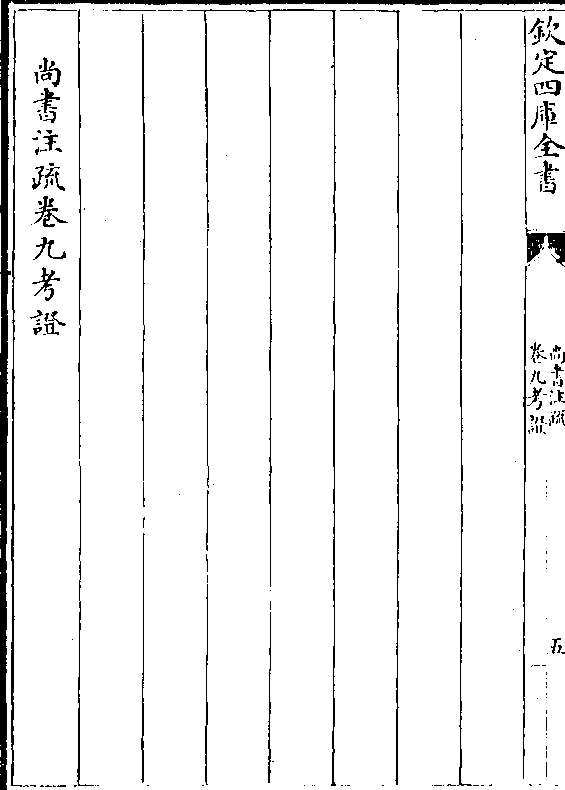 欽定四庫全書
尚書注疏
卷九考證
五
尚書注疏卷九考證